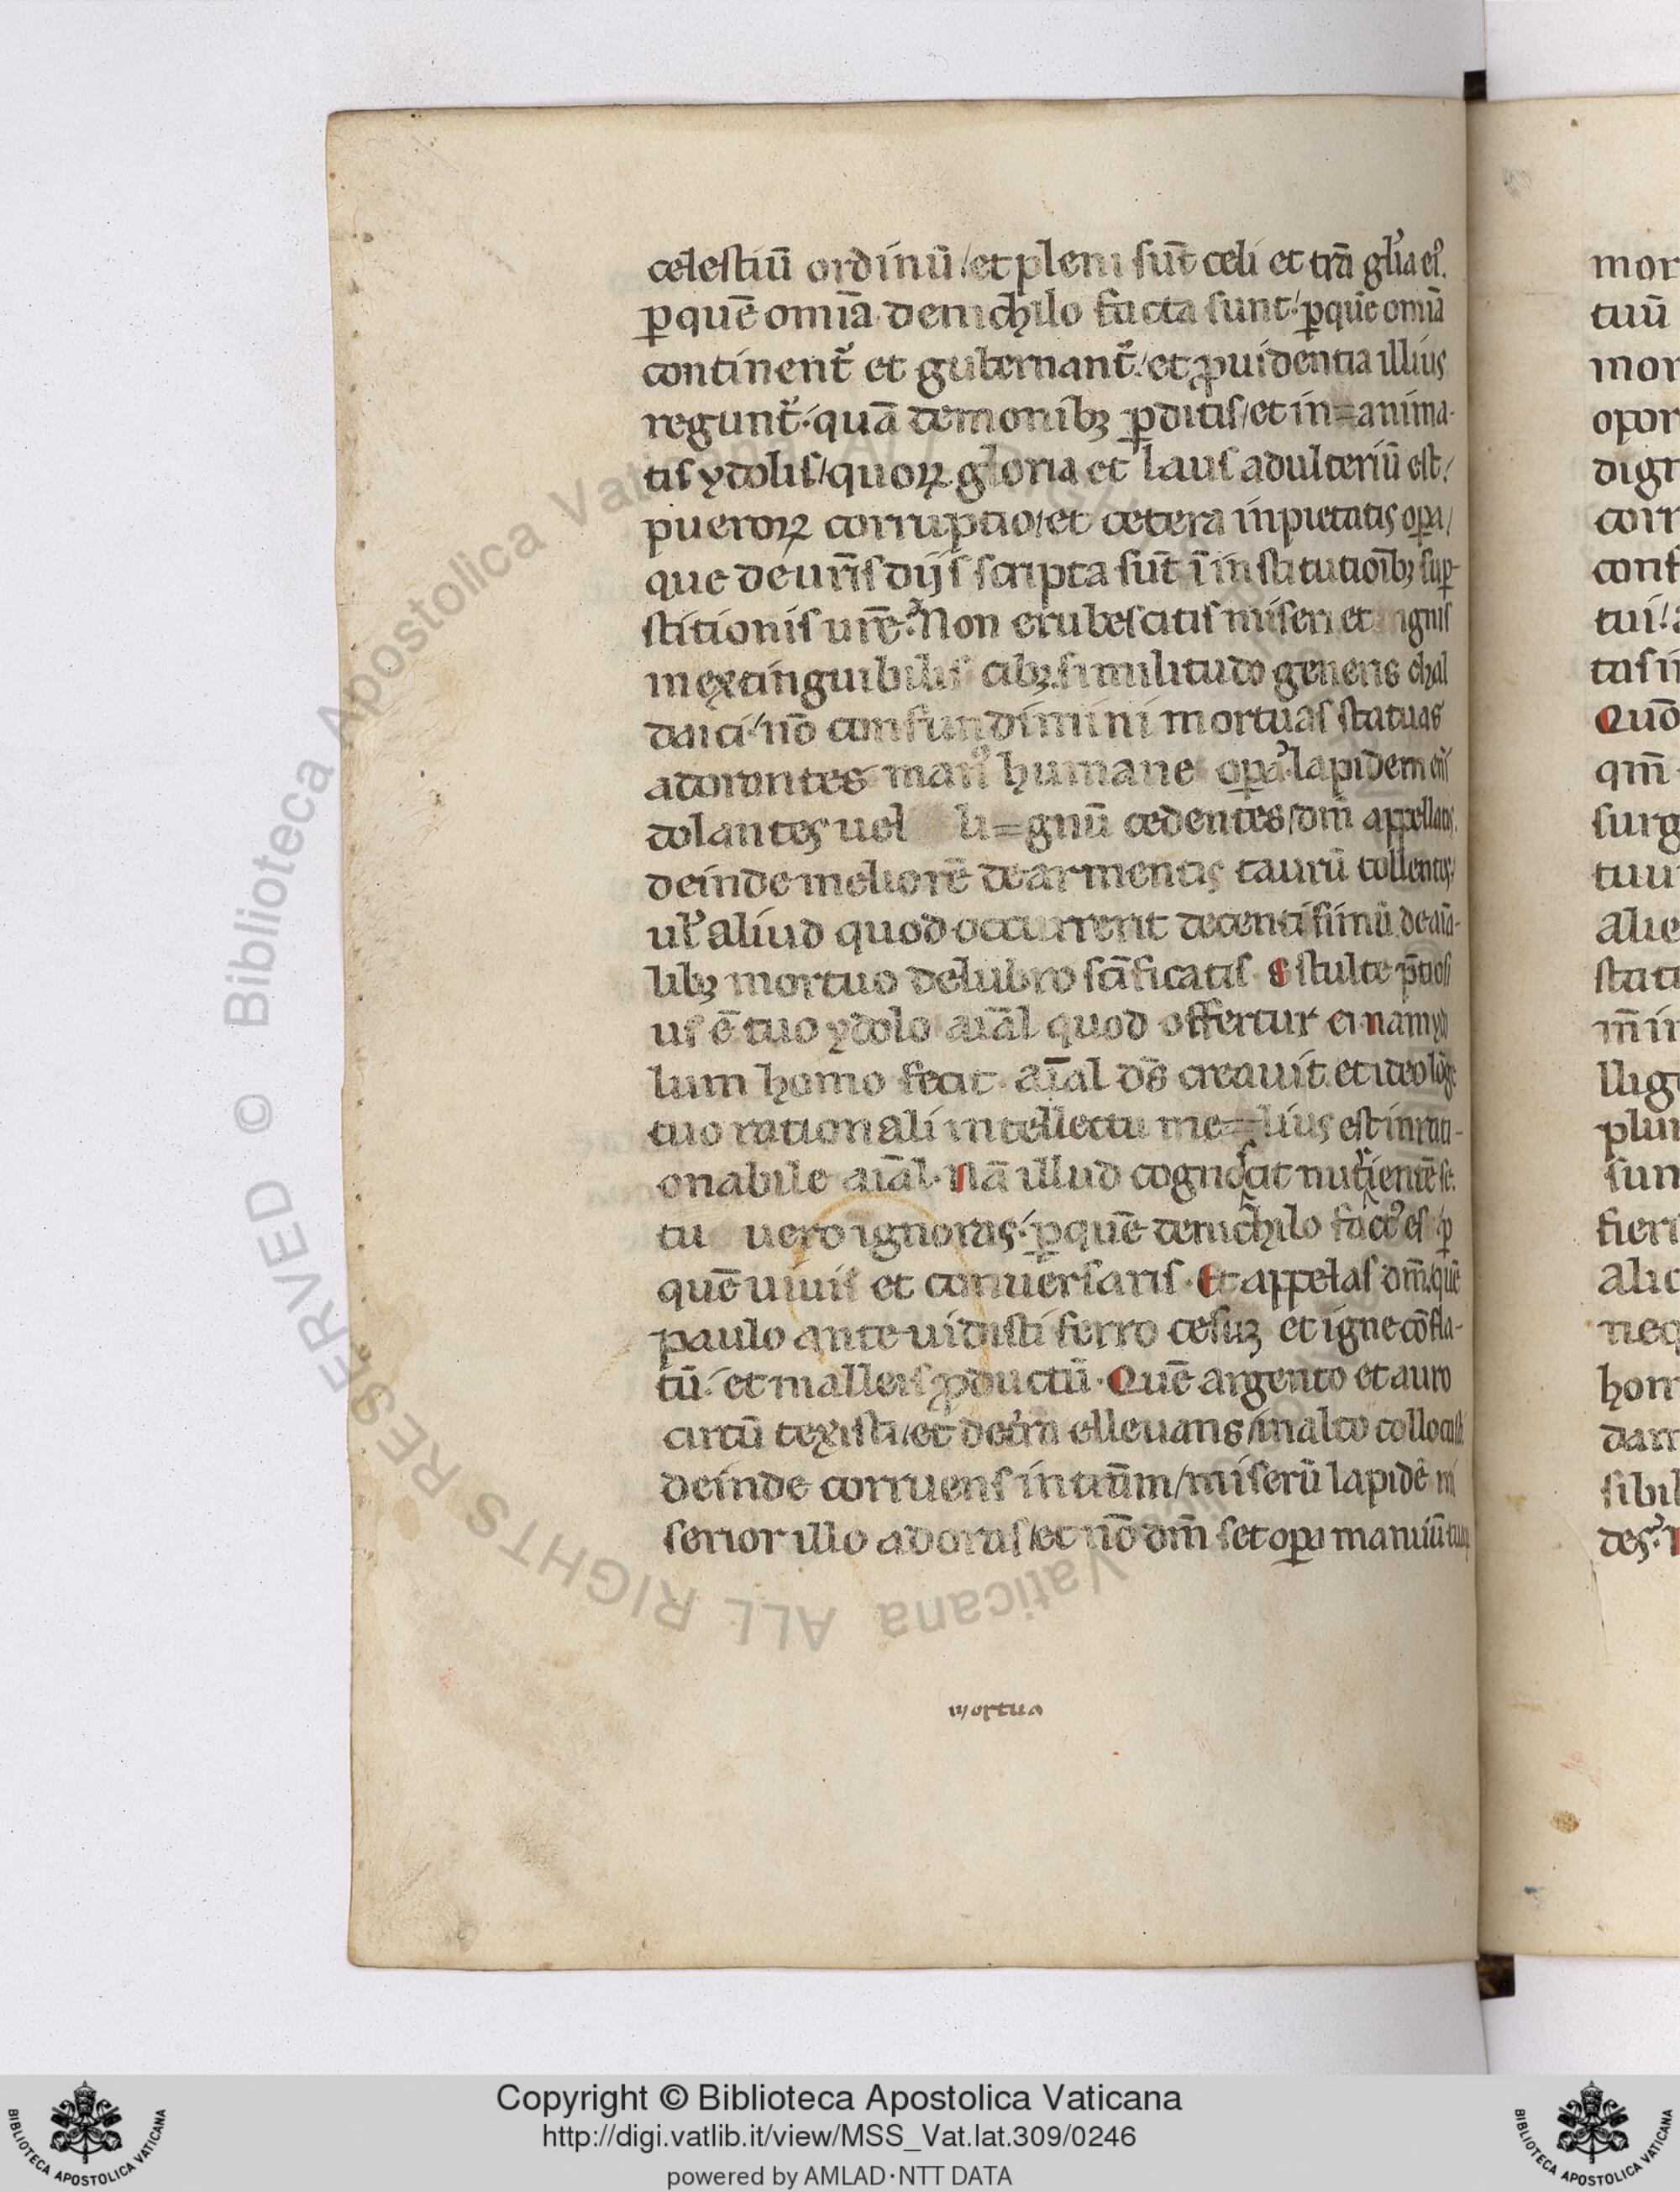 celestiū ordinū/et pleni sūt celi et trā gl'ia ei9.
ꝑ quē omīa de nichilo facta sunt/ ꝑ quē omīa
continent᷑ et gubernant᷑/et ꝓuidentia illius
regunt᷑/quā demonibꝫ ꝑditis/et in=anima-
tis ydolis/quoꝝ gloria et laus adulteriū est/
pueroꝝ corruptio/et cetera inpietatis oꝑa/
que de ur̄is dijs scripta sūt ī institutiōibꝫ suꝑ-
stitionis ur̄e. Non erubescitis miseri et ignis
inextinguibilis cibꝫ similitudo generis chal
daici/nō confundimini mortuas statuas
adorantes man9 humane oꝑa. lapidem eni
dolantes uel li=gnū cedentes/dm̄ appellatis.
deinde meliorē de armentis taurū tollentes/
ul' aliud quod occurrerit decentissimū de aīa-
libꝫ mortuo delubro sc̄ificatis. s stulte p̄tiosi
us ē tuo ydolo aīāl quod offertur ei. nam ydo
lum homo fecit. aīal ds̄ creauit. et ideo lōge
tuo rationali intellectu me=lius est inrati-
onabile aīāl. Nā illud cognoscit nutrientē se.
tu uero ignoras/ꝑ quē de nichilo fact9 es/ꝑ
quē uiuis et conuersaris. Et appelas dm̄/quē
paulo ante uidisti ferro cesuꝫ et igne cōfla-
tū/et malleis ꝓductū. Quē argento et auro
circū texisti/et de t'ra elleuans/in alto collocasti
deinde corruens in tr̄am/miserū lapidē mi
serior illo adoras/et nō dm̄ set oꝑa manuū tuaꝝ
mortua
mor
tuū
mor
opor
dign
corr
conf
tui!
tas in
Quō
qm̄
surg
tuu
alie
stati
m̄ in
llig
plur
sun
fieri
alic
neq
hom
darr
sibil
des.
© Biblioteca Apostolica Vaticana ALL RIGHTS RESERVED
Copyright © Biblioteca Apostolica Vaticana
http://digi.vatlib.it/view/MSS_Vat.lat.309/0246
powered by AMLAD·NTT DATA
BIBLIOTECA APOSTOLICA VATICANA
BIBLIOTECA APOSTOLICA VATICANA